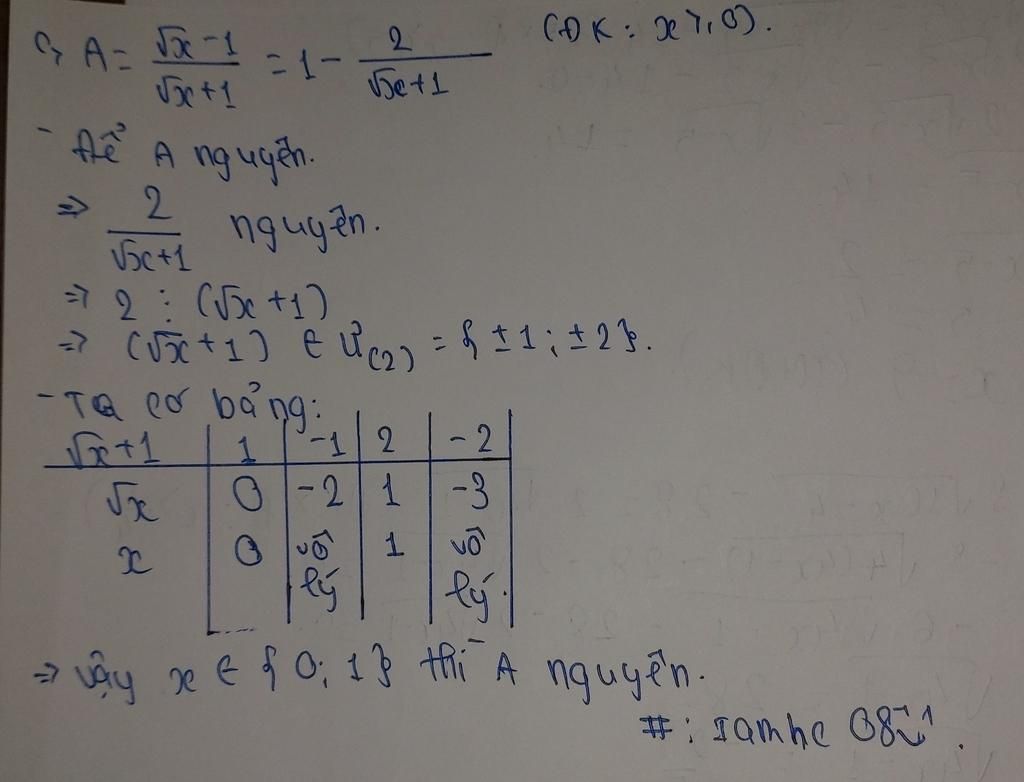 c, A = (√x - 1)/(√x + 1) = 1 - 2/(√x + 1) (ĐK: x ≥ 0).
- Để A nguyên.
=> 2/(√x + 1) nguyên.
=> 2 ⋮ (√x + 1)
=> (√x + 1) ∈ Ư(2) = { ±1; ±2 }.
- Ta có bảng:
√x + 1 | 1 | -1 | 2 | -2 |
√x | 0 | -2 | 1 | -3
x | 0 | vô lý | 1 | vô lý.
=> vậy x ∈ { 0; 1 } thì A nguyên.
#: Iamhc 08